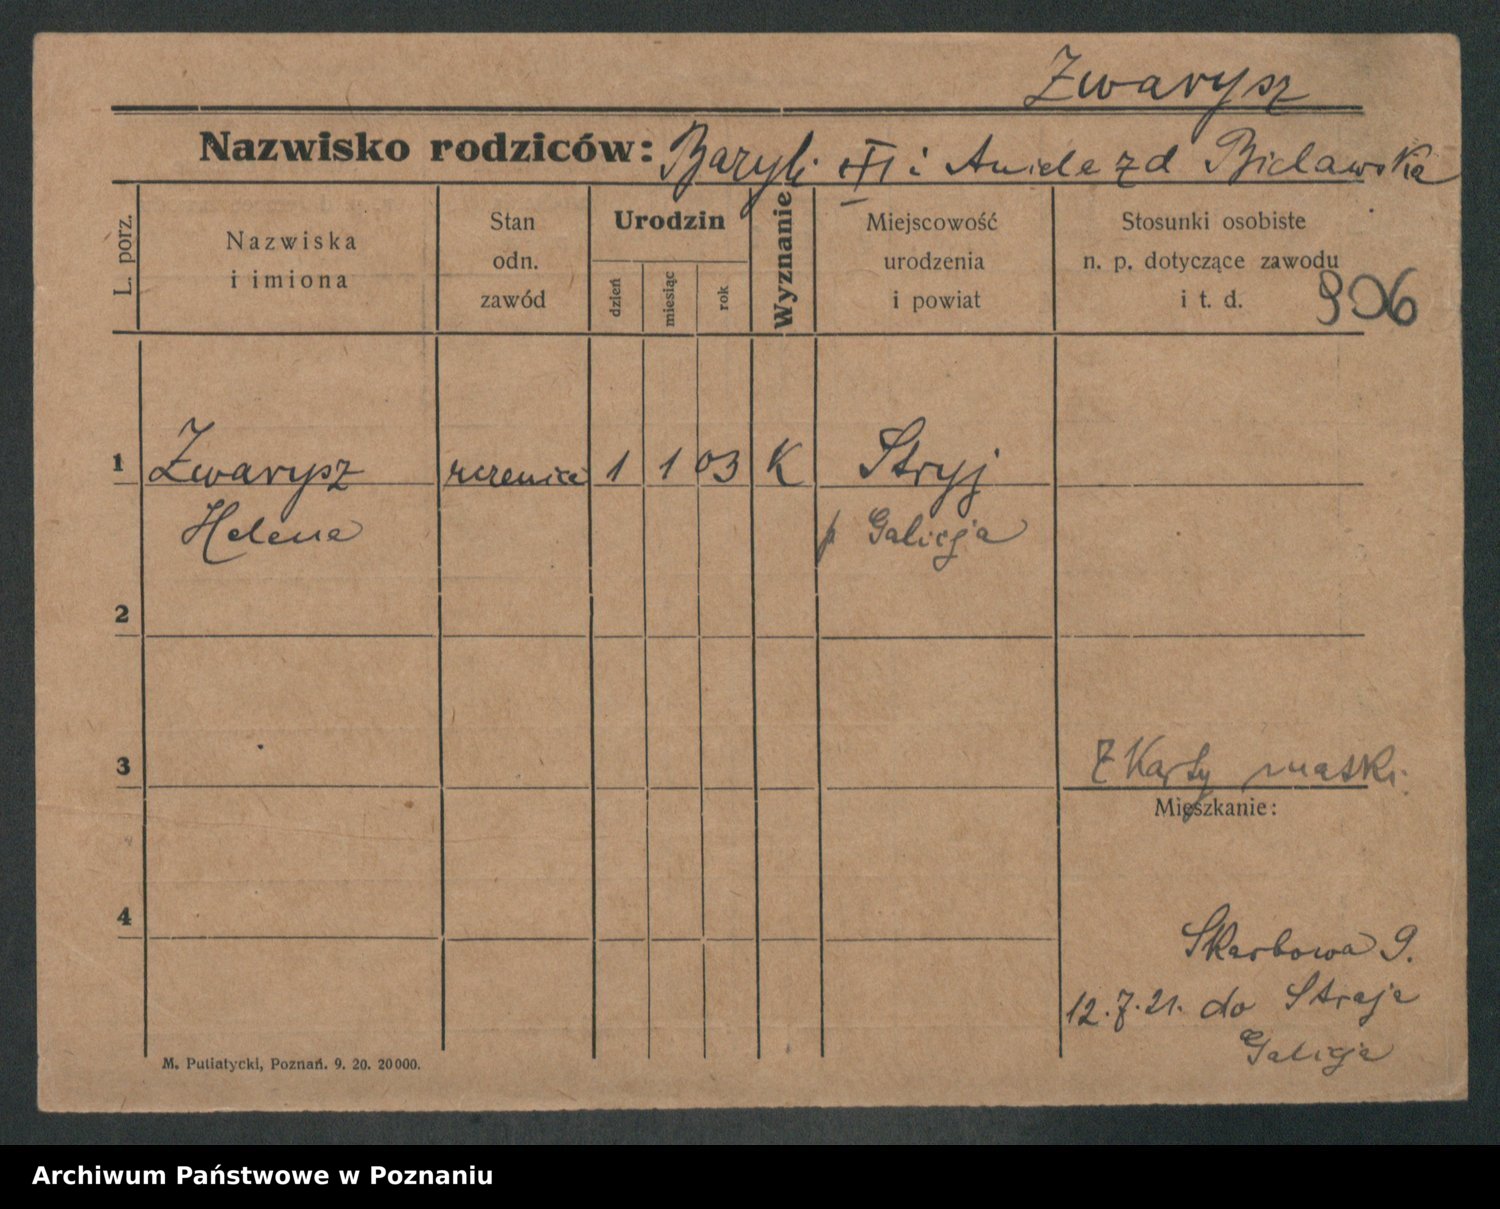 Zwarysz
Nazwisko rodziców: Bazyli III i Aniela zd Bielawska
L. porz.
Nazwiska
i imiona
Stan
odn.
zawód
Urodzin
dzień
miesiąc
rok
Wyznanie
Miejscowość
urodzenia
i powiat
Stosunki osobiste
n. p. dotyczące zawodu
i t. d.
906
1 Zwarysz uczenica 1 1 03 K Stryj
Helena p Galicja
2
3
Z Karty matki
Mieszkanie:
4
Skarbowa 9.
12.7.21. do Stryja
Galicja
M. Putiatycki, Poznań. 9. 20. 20000.
Archiwum Państwowe w Poznaniu